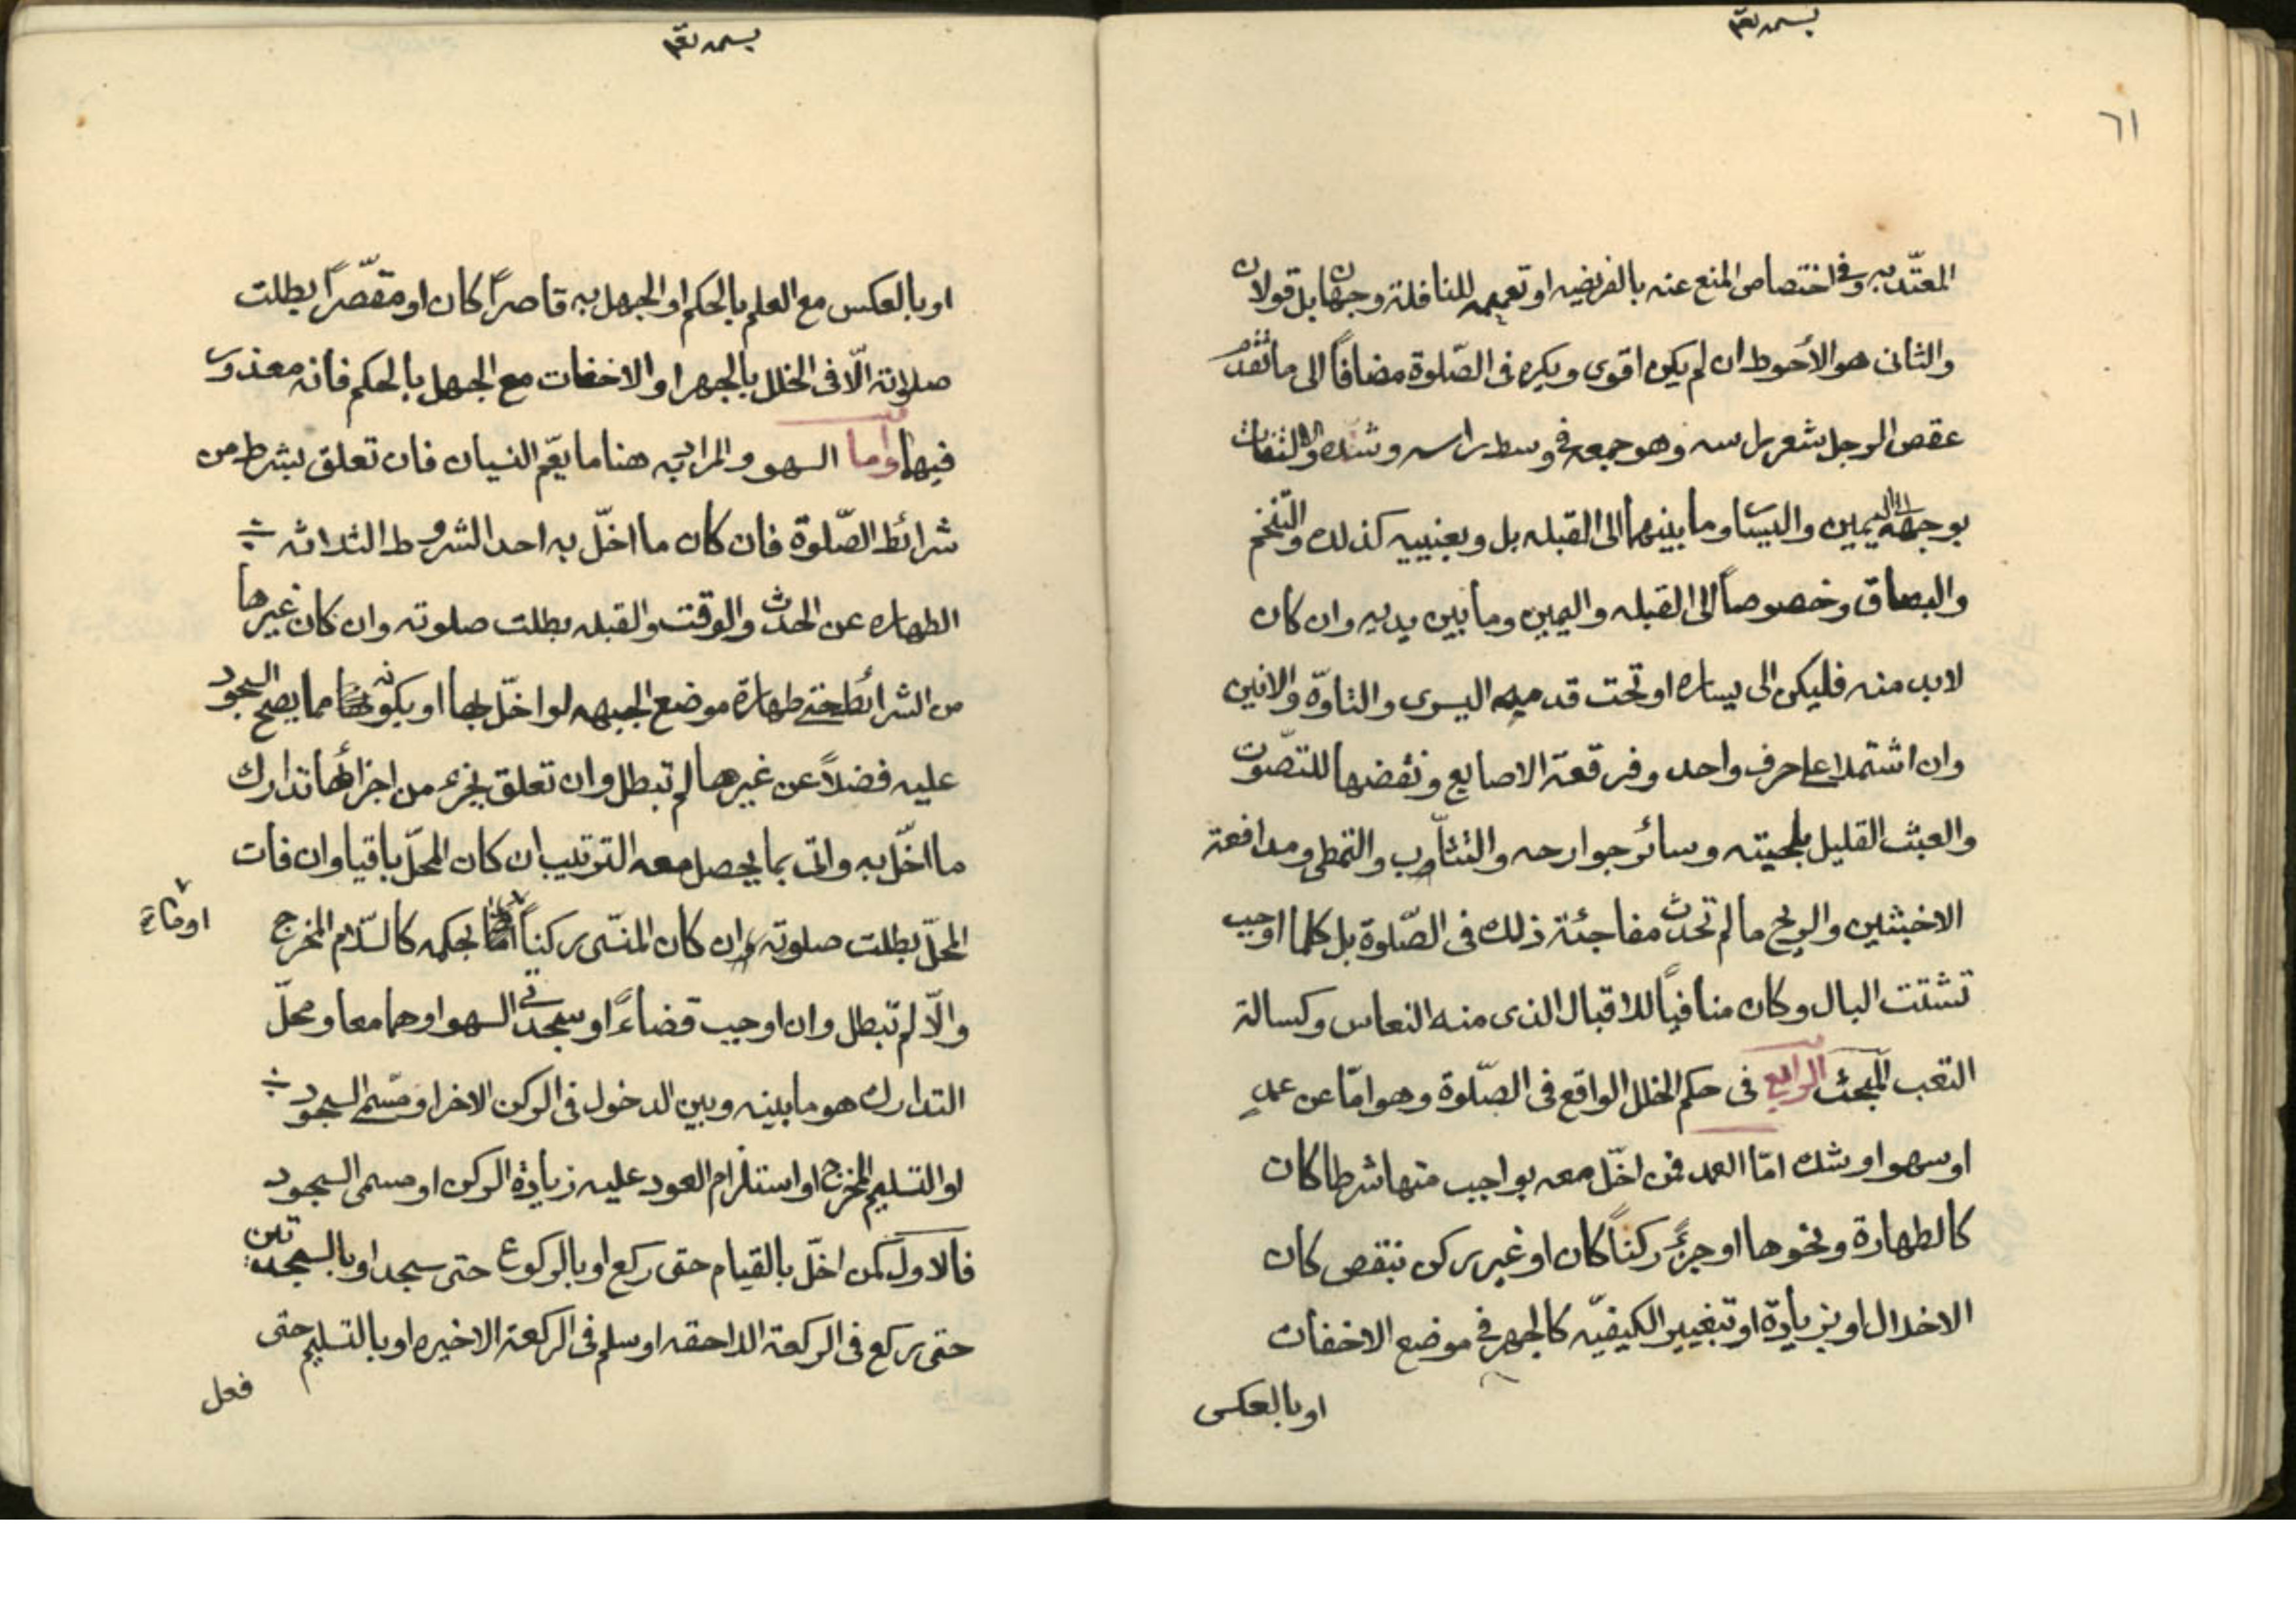 ٦١
المعتدّ به وفی اختصاص المنع عنه بالفریضه او تعمیمه للنافلة وجهان بل قولان
والثانی هو الأحوط ان لم یکن اقوی ویکره فی الصّلوة مضافاً الی ما تقدم
عقص الرجل شعر راسه وهو جمعه فی وسط راسه وشدّه والالتفات
بوجهه الی الیمین والیسار وما بینهما الی القبله بل وبعینیه کذلك والتنخم
والبصاق وخصوصاً الی القبله والیمین وما بین یدیه وان کان
لابد منه فلیکن الی یساره او تحت قدمیه الیسری والتاوّه والانین
وان اشتملا علی حرف واحد وفرقعة الاصابع ونقضها للتصّوت
والعبث القلیل بلحیته وسائر جوارحه والتثآوب والتمطی ومدافعة
الاخبثین والریح ما لم تحدث مفاجئة ذلك فی الصّلوة بل کلما اوجب
تشتت البال وکان منافیاً للاقبال الذی منه النعاس وکسالة
التعب المبحث الرابع فی حکم الخلل الواقع فی الصّلوة وهو امّا عن عمدٍ
او سهو او شك امّا العمد فمن اخلّ معه بواجب منها شرطا کان
کالطهارة ونحوها او جزءً رکناً کان او غیر رکن بنقص کان
الاخلال او بزیادة او تبغییر الکیفیّه کالجهر فی موضع الاخفات
او بالعکس
او بالعکس مع العلم بالحکم او الجهل به قاصراً کان او مقصّراً بطلت
صلاته الّا فی الخلل بالجهر او الاخفات مع الجهل بالحکم فانه معذور
فیها وأما السهو والمراد به هنا ما یعّم النسیان فان تعلق بشرط من
شرائط الصّلوة فان کان ما اخلّ به احد الشروط الثلاثه
الطهاره عن الحدث والوقت والقبله بطلت صلوته وان کان غیرها
من الشرائط حتی طهارة موضع الجبهه لو اخلّ بها او بکونه مما یصح السجود
علیه فضلاً عن غیرها لم تبطل وان تعلق بجزء من اجزائها تدارك
ما اخلّ به واتی بما یحصل معه الترتیب ان کان المحلّ باقیا وان فات
المحلّ بطلت صلوته ان کان المنسّی رکناً بحکمه کالسّلام المخرج
والّا لم تبطل وان اوجب قضاءً او سجدتی السهو او هما معا ومحلّ
التدارك هو ما بینه وبین الدخول فی الرکن الاخر او مسّمی السجود
او التسلیم المخرج او استلزام العود علیه زیادة الرکن او مسمی السجود
فالاول کمن اخلّ بالقیام حتی رکع او بالرکوع حتی سجد او بالسجدتین
حتی رکع فی الرکعة اللاحقه او سلم فی الرکعة الاخیره او بالتسلیم حتی
فعل